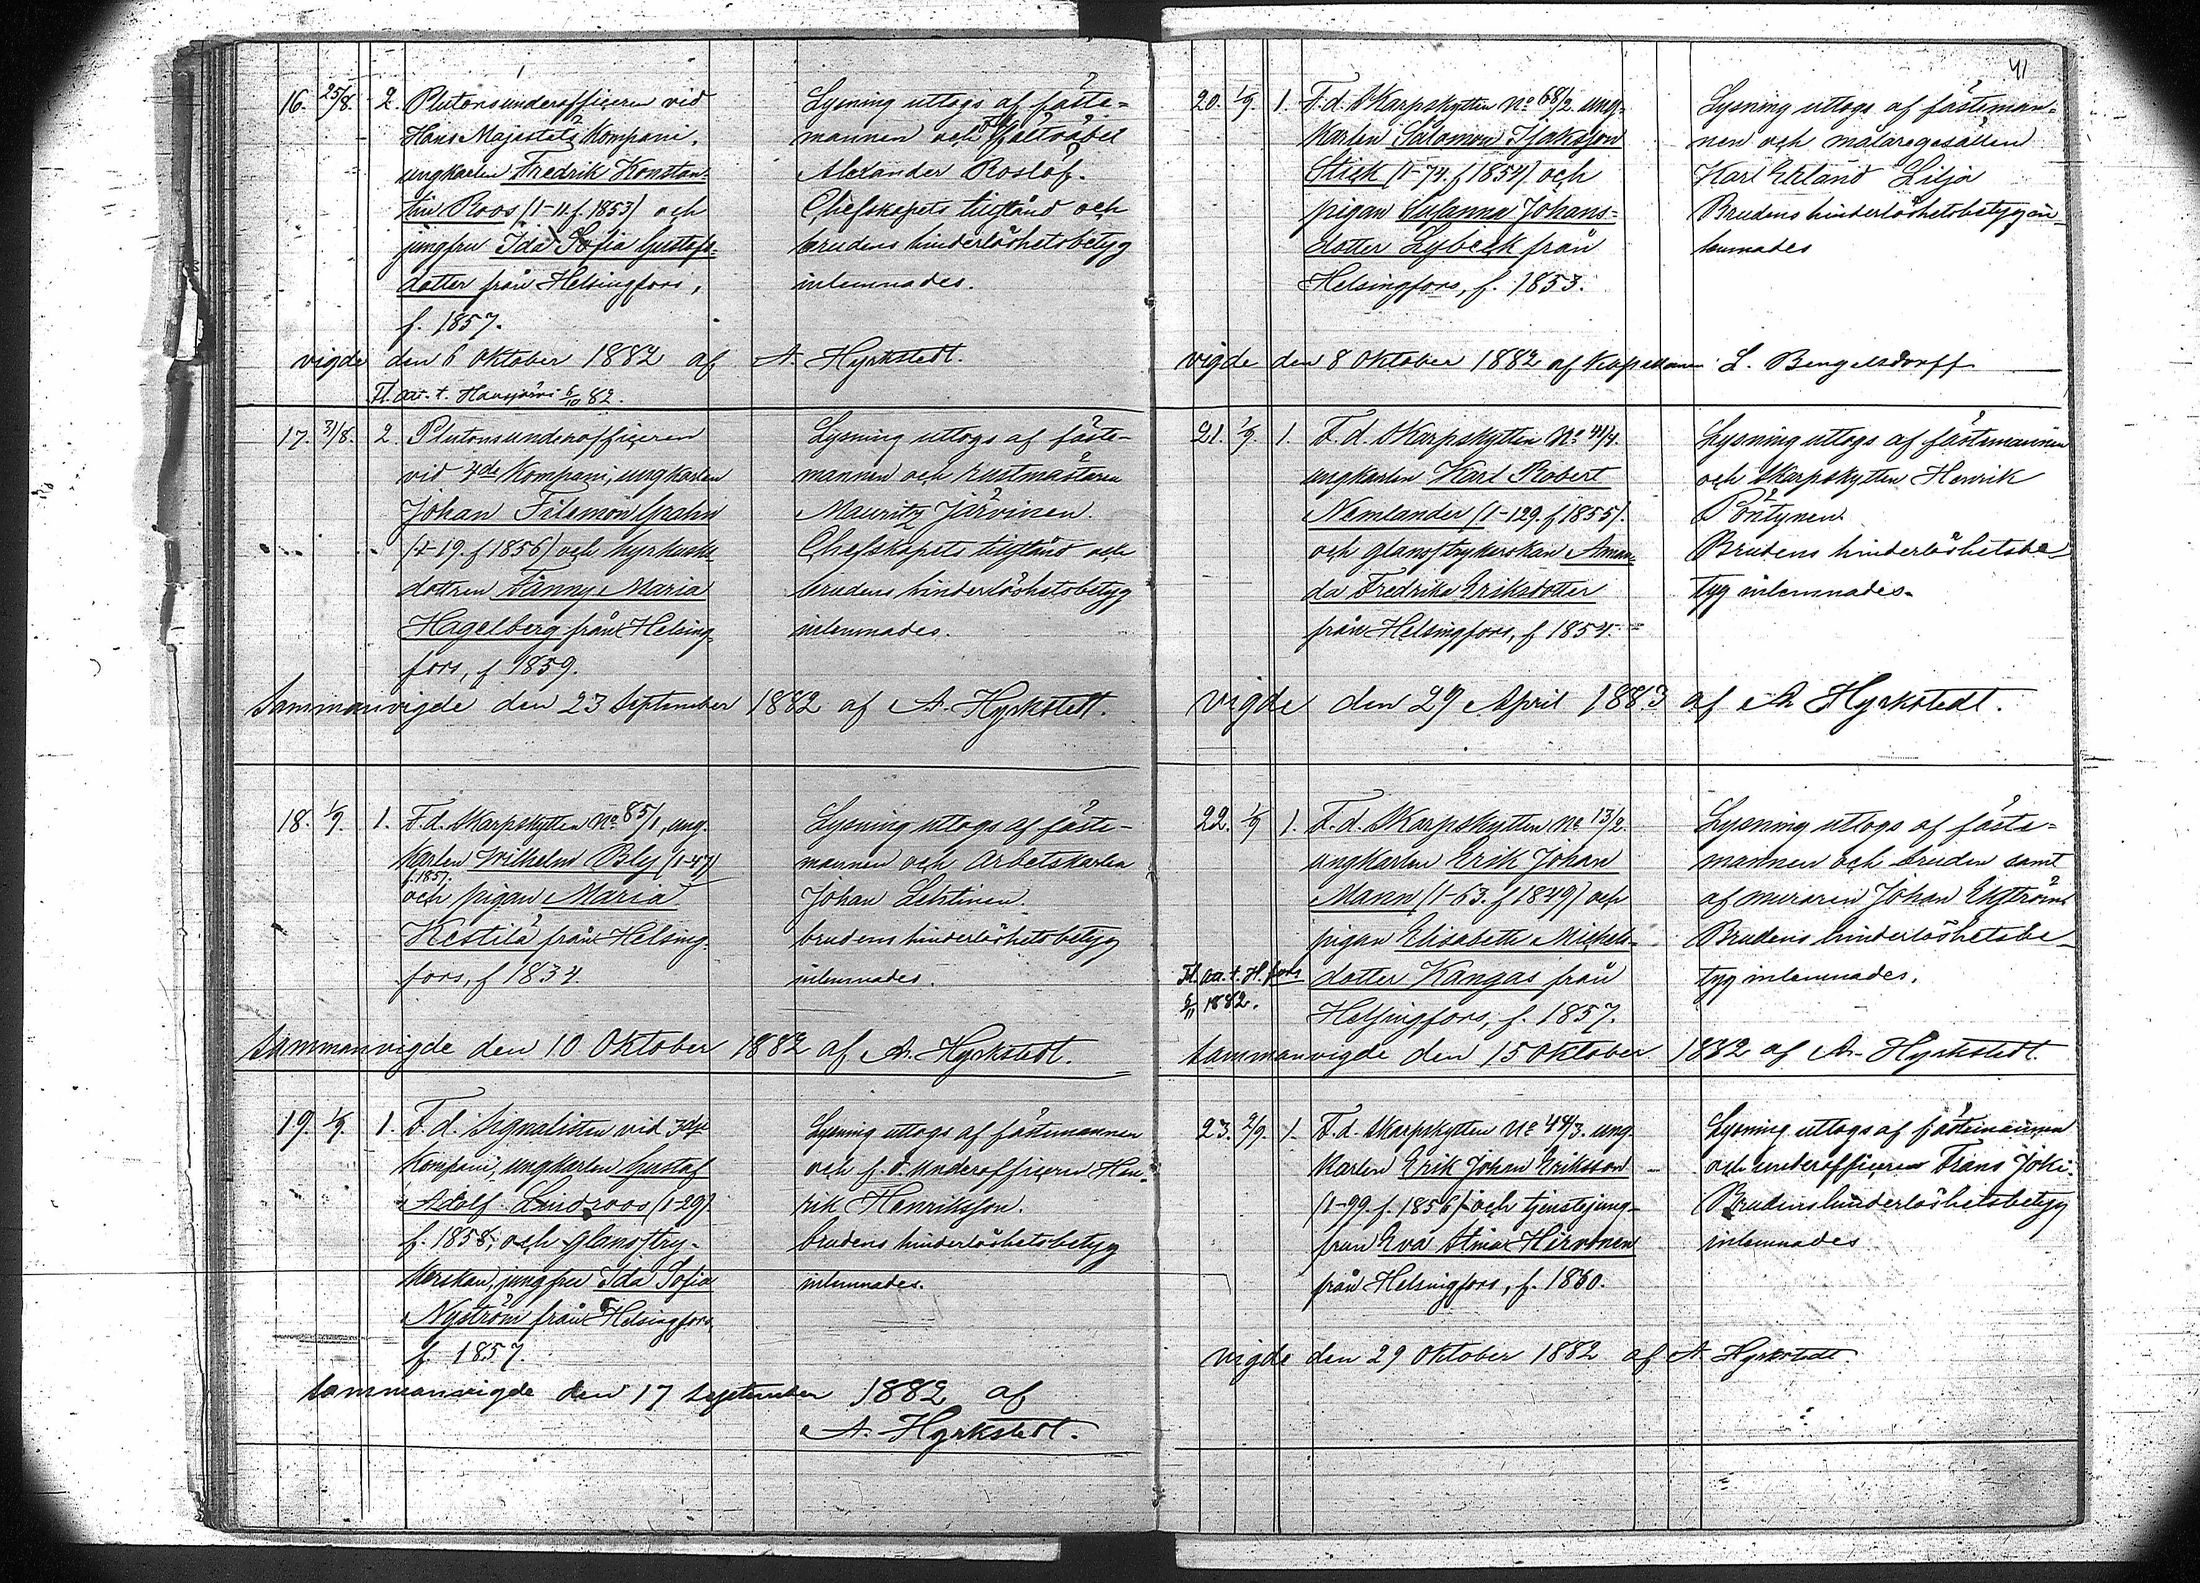 41
16. 25/8. 2. Plutonsunderofficeren vid
Hans Majestets Kompani,
ungkarlen Fredrik Konstan-
tin Roos (1-11. f. 1853) och
jungfru Ida Sofia Gustafs-
dotter från Helsingfors,
f. 1857.
Lysning uttogs af fäste-
mannen och fältväbel
Alexander Roslöf.
Chefskapets tillstånd och
brudens hinderlöshetsbetyg
inlemnades.
vigde den 6 Oktober 1882 af A. Hyrkstedt.
Fl. att. t. Hausjärvi 6/10 82.
17. 31/8. 2. Plutonsunderofficeren
vid 4de Kompani, ungkarlen
Johan Filemon Grahn
(1-19. f 1856) och hyrkusks
dottren Fanny Maria
Hagelberg från Helsing
fors, f 1859.
Lysning uttogs af fäste-
mannen och rustmästaren
Mauritz Järvinen.
Chefskapets tillstånd och
brudens hinderlöshetsbetyg
inlemnades.
Sammanvigde den 23 September 1882 af A. Hyrkstedt.
18. 1/9. 1. F.d. Skarpskytten No 85/1, ung-
karlen Wilhelm Bly (1-47)
f. 1857.
och pigan Maria
Kestilä från Helsing-
fors, f 1834.
Lysning uttogs af fäste-
mannen och Arbetskarlen
Johan Lehtinen.
brudens hinderlöshetsbetyg
inlemnades.
Sammanvigde den 10 Oktober 1882 af A. Hyrkstedt.
19. 1/9. 1. F.d. Signalisten vid 3dje
Kompani, ungkarlen Gustaf
Adolf Lindroos (1-29)
f. 1858, och glansstry-
kerskan, jungfru Ida Sofia
Nyström från Helsingfors,
f. 1857.
Lysning uttogs af fästmannen
och f.d. underofficeren Hen-
rik Henriksson.
brudens hinderlöshetsbetyg
inlemnades.
Sammanvigde den 17 September 1882 af
A. Hyrkstedt.
20. 1/9. 1. F.d. Skarpskytten No 68/2. ung-
karlen Salomon Isaksson
Stick (1-74. f 1854) och
pigan Susanna Johans-
dotter Lybeck från
Helsingfors, f. 1853.
Lysning uttogs af fästeman-
nen och målaregesällen
Karl Erland Lilja
Brudens hinderlöshetsbetyg in-
lemnades
vigde den 8 Oktober 1882 af Kapellanen L. Bengelsdorff
21. 1/9. 1. F.d. Skarpskytten No 41/4.
ungkarlen Karl Robert
Nemlander (1-129. f 1855).
och glansstrykerskan Aman-
da Fredrika Eriksdotter
från Helsingfors, f 1854.
Lysning uttogs af fästemannen
och Skarpskytten Henrik
Pöntynen.
Brudens hinderlöshetsbe
tyg inlemnades.
vigde den 29 April 1883 af A Hyrkstedt.
22. 1/9 1. F.d. Skarpskytten No 13/2.
ungkarlen Erik Johan
Mann (1-63. f 1849) och
pigan Elisabeth Mickels-
dotter Kangas från
Helsingfors, f. 1857.
Fl. att. t. H.fors
6/11 1882.
Lysning uttogs af fäste-
mannen och bruden samt
af muraren Johan Ekström
Brudens hinderlöshetsbe-
tyg inlemnades.
Sammanvigde den 15 Oktober 1882 af A. Hyrkstedt.
23. 2/9. 1. F.d. Skarpskytten No 44/3. ung-
karlen Erik Johan Eriksson
(1-99. f. 1856) och tjenstejung-
frun Eva Stina Hirvonen
från Helsingfors, f. 1860.
Lysning uttogs af fästemannen
och underofficeren Frans Joki.
Brudens hinderlöshetsbetyg
inlemnades
vigde den 29 Oktober 1882 af A Hyrkstedt.